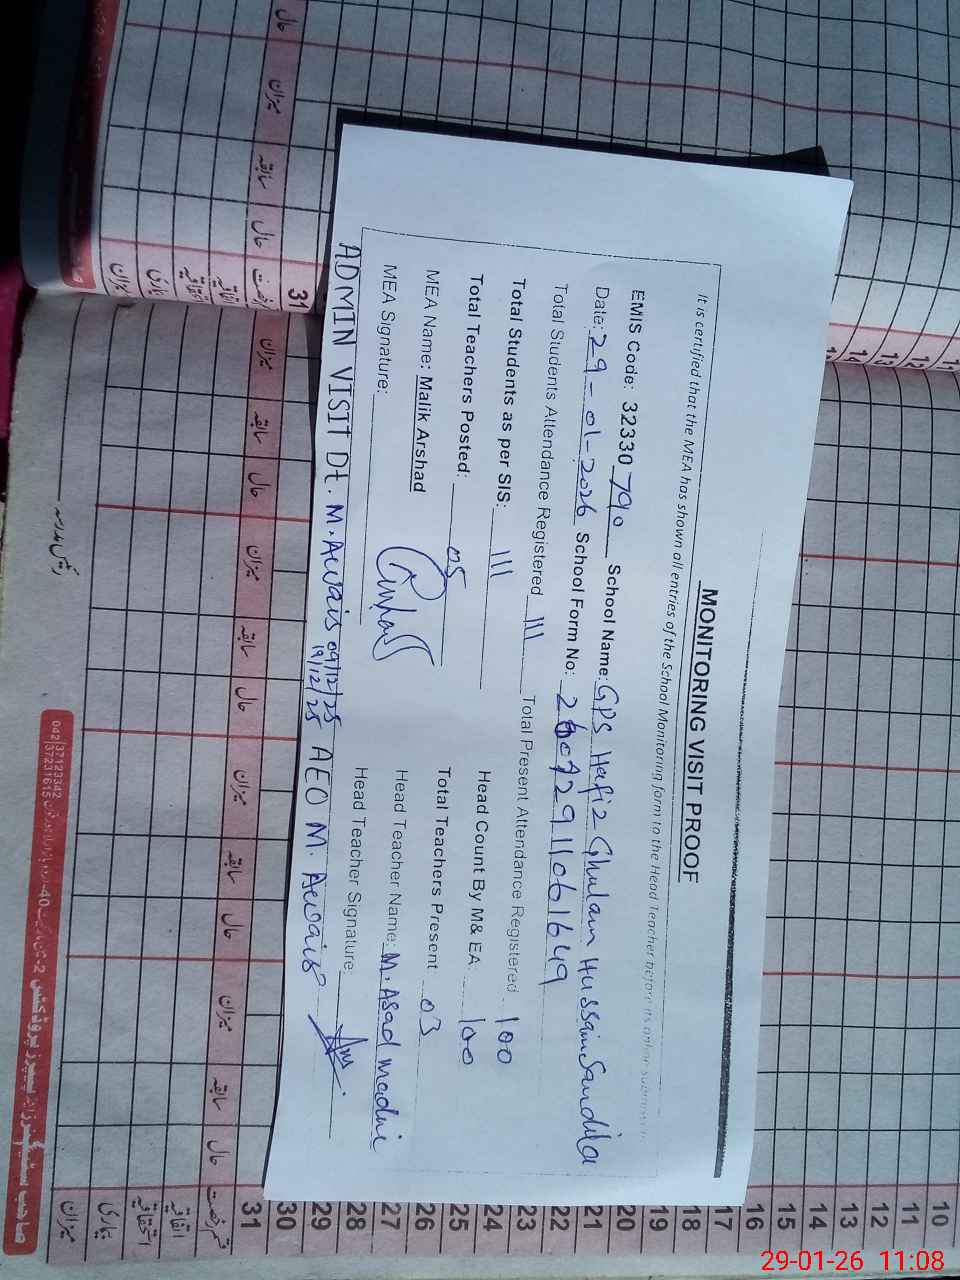 MONITORING VISIT PROOF
It is certified that the MEA has shown all entries of the School Monitoring form to the Head Teacher before its online submission
EMIS Code: 32330790 School Name: GPS Hafiz Ghulam Hussain Sandila
Date: 29-01-2026 School Form No:
Total Students Attendance Registered 111 Total Present Attendance Registered 100
Total Students as per SIS: 111 Head Count By M& EA: 100
Total Teachers Posted: 05 Total Teachers Present 03
MEA Name: Malik Arshad Head Teacher Name: M. Asad Madni
MEA Signature: Head Teacher Signature:
ADMIN VISIT Dt. M. Awais 09/12/25 AEO M. Awais
19/12/25
31
میزان
سابقہ
حال
میزان
سابقہ
حال
میزان
سابقہ
حال
میزان
سابقہ
حال
10
11
12
13
14
15
16
17
18
19
20
21
22
23
24
25
26
27
28
29
30
31
قمرضت
اتفاقیہ
استحقاقیہ
بیماری
میزان
042 37123342
37231615
29-01-26 11:08